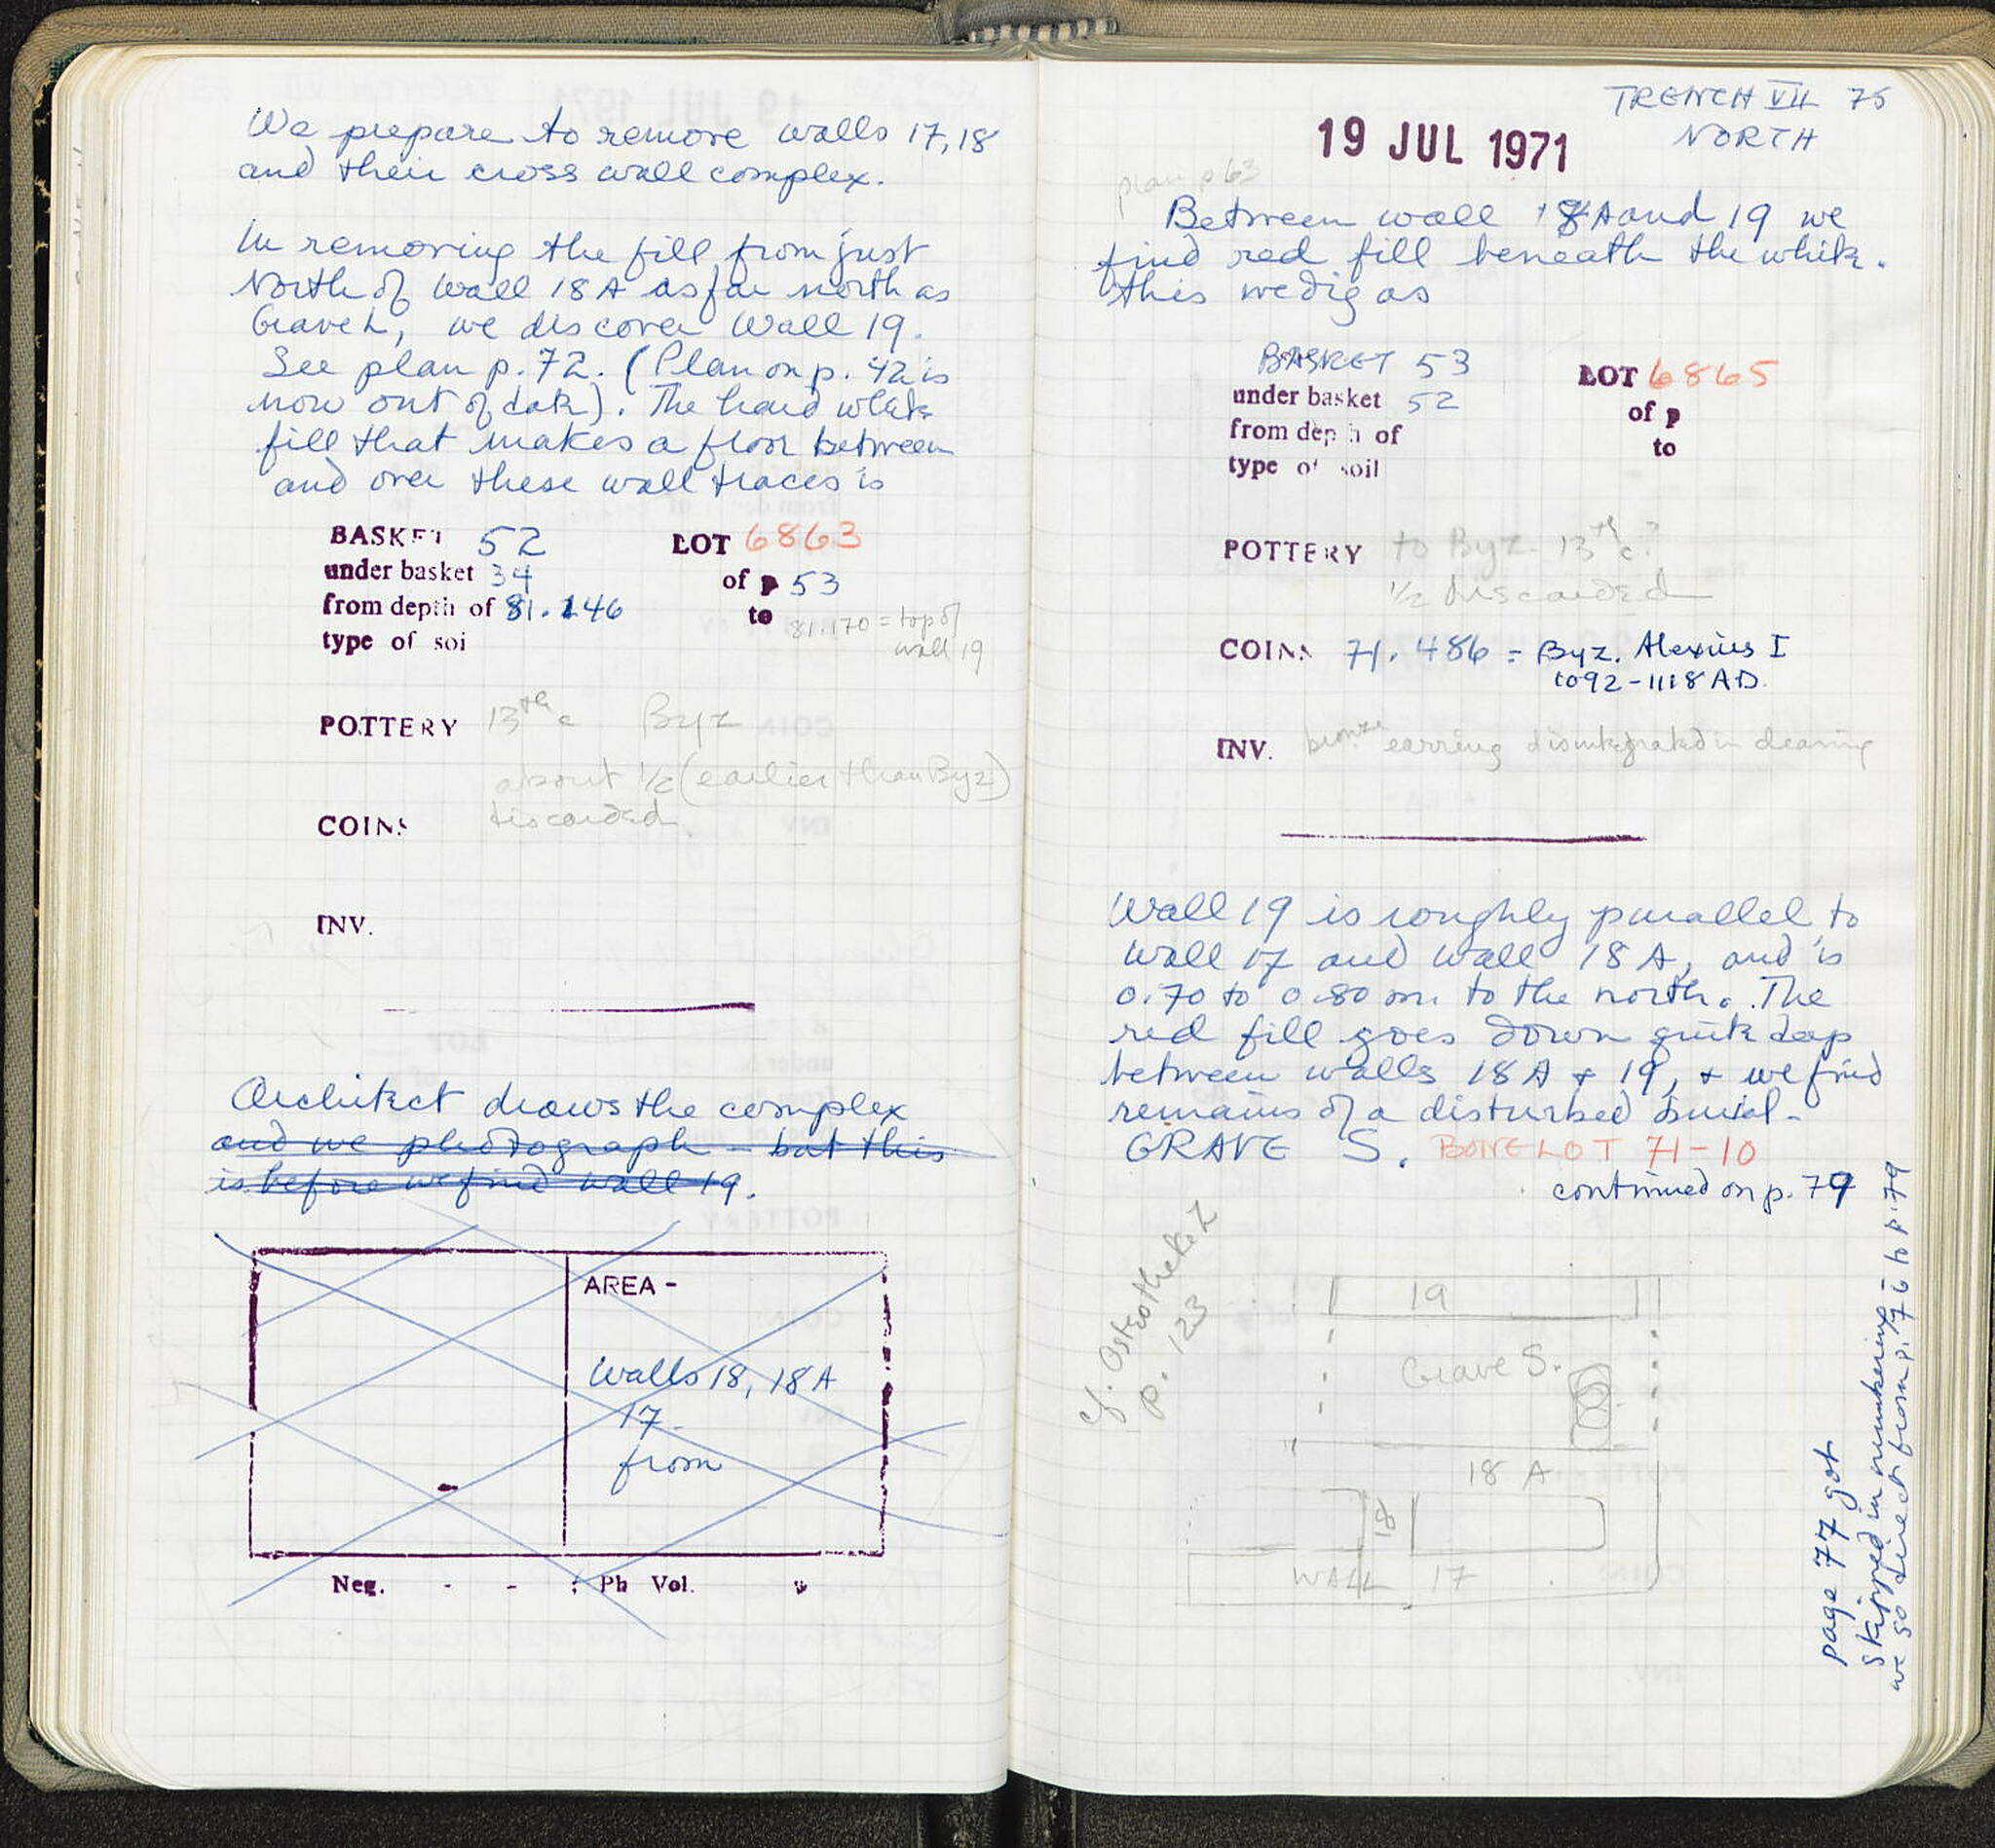 We prepare to remove walls 17, 18
and their cross wall complex.
In removing the fill from just
North of Wall 18A as far north as
Grave L, we discover Wall 19.
See plan p. 72. (Plan on p. 42 is
now out of date). The hard white
fill that makes a floor between
and over these wall traces is
BASKET 52 LOT 6863
under basket 34 of p 53
from depth of 81.146 to 81.170 = top of
wall 19
type of soi
POTTERY 13th c Byz
about 1/2 (earlier than Byz)
discarded.
COINS
INV.
Architect draws the complex
and we photograph - but this
is before we find wall 19.
AREA -
Walls 18, 18A
17
from
Neg. - - : Ph Vol.
TRENCH VII 75
NORTH
19 JUL 1971
plan p 63
Between wall 18A and 19 we
find red fill beneath the white.
this we dig as
BASKET 53 LOT 6865
under basket 52 of p
from depth of to
type of soil
POTTERY to Byz. 13th c?
1/2 discarded
COINS 71. 486 = Byz. Alexius I
1092-1118 AD.
INV. bronze earring disintegrated in cleaning
Wall 19 is roughly parallel to
Wall 17 and Wall 18A, and is
0.70 to 0.80 m. to the north. The
red fill goes down quite deep
between walls 18A + 19, + we find
remains of a disturbed burial -
GRAVE S. BONE LOT 71-10
continued on p. 79
cf. Osteotheke Z
p. 123
19
Grave S.
18 A
18
WALL 17
page 77 got
skipped in numbering
we go direct from p. 76 to p. 79